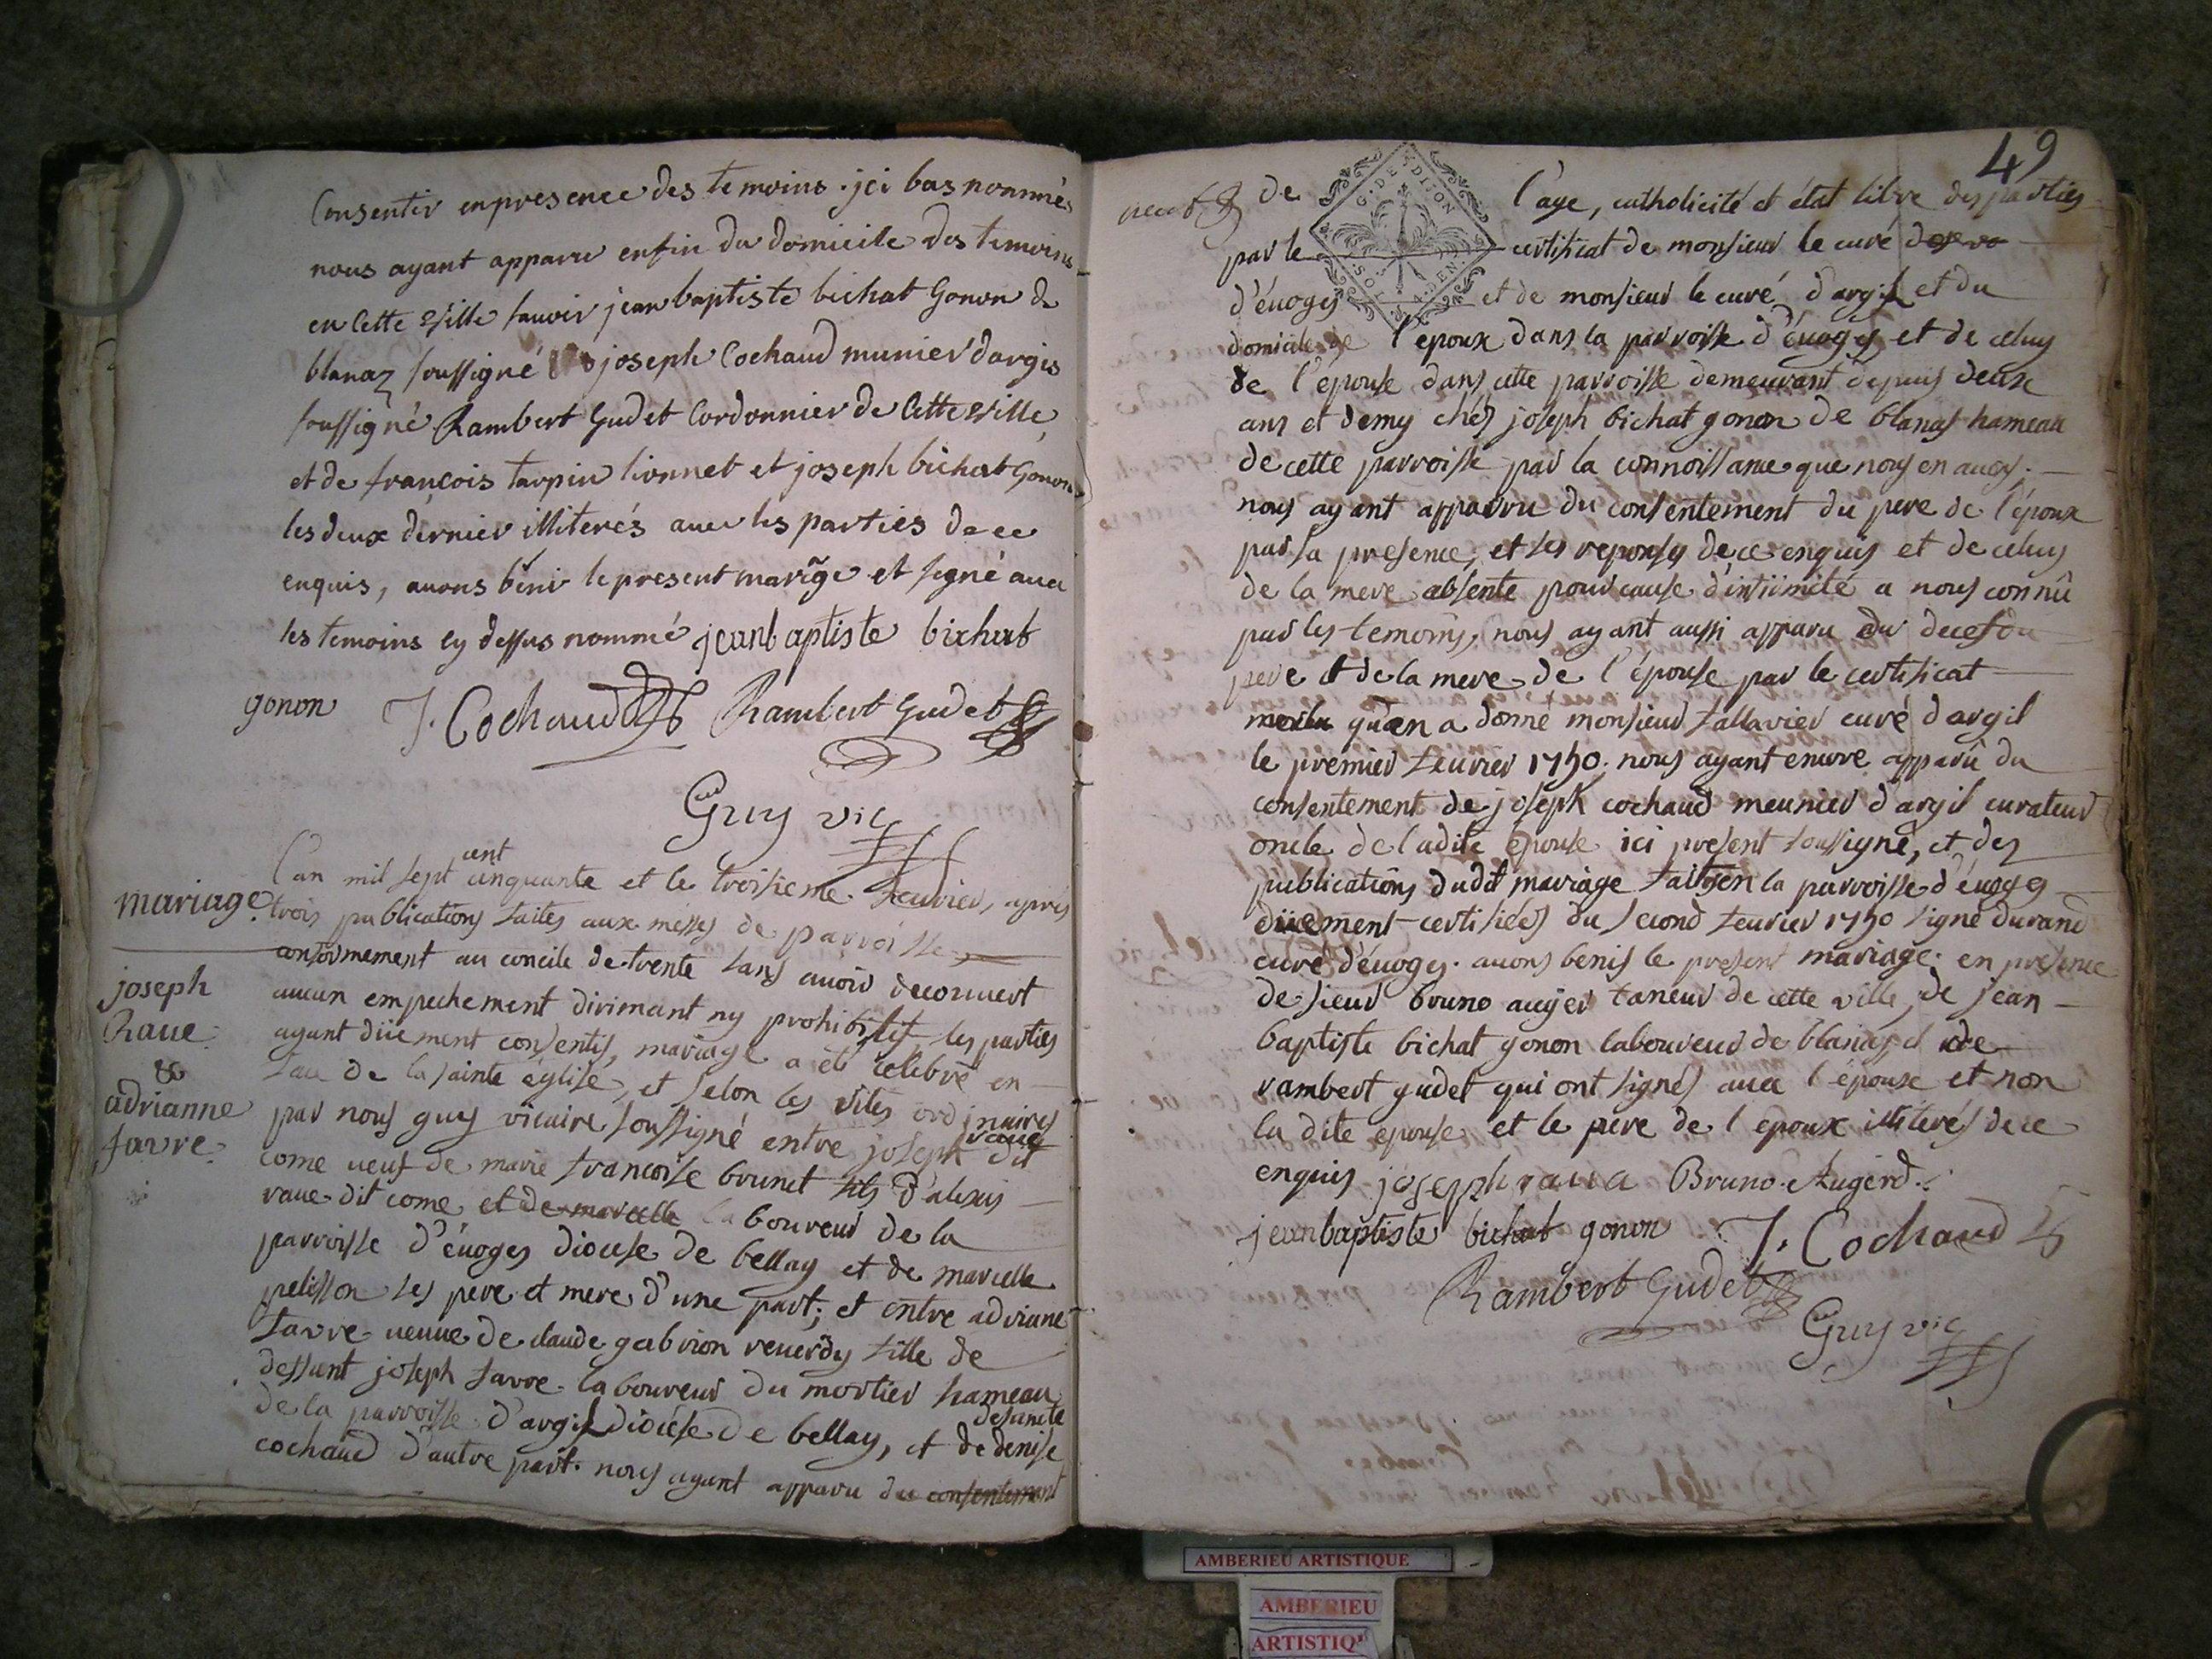 Consentir en presence des temoins jci bas nommés
nous ayant apparu enfin du domicile des temoins
en Cette Ville sauoir jean baptiste bichat Gonon de
blanaz soussigné joseph Cochaud munier dargis
soussigné Rambert Gudet Cordonnier de Cette Ville
et de françois tarpin lionnet et joseph bichat Gonon
les deux dernier illiterés auec les parties de ce
enquis, auons béni le present marige et signé auec
les temoins cy dessus nommé jeanbaptiste bichat
gonon J. Cochaud Rambert Gudet
Guy vic
mariage
joseph
Raue
&
adrianne
favre
L'an mil sept cent cinquante et le troisieme feurier, après
trois publications faites aux messes de parroisse
conformement au concile de trente sans auoir decouuert
aucun empechement dirimant ny prohibitif, les parties
ayant düement consentis, mariage a eté celebré en
face de la sainte église, et selon les rites ordinaires
par nous guy vicaire soussigné entre joseph raue dit
come ueuf de marie francoise brunet fils d'alexis
raue dit come et de marcelle laboureur de la
parroisse d'éuoges diocese de bellay et de marcelle
pelisson ses pere et mere d'une part; et entre adriane
favre ueuue de claude gabrion reuerdy fille de
deffunt joseph favre laboureur du mortier hameau
de la parroisse d'argil diocése de bellay, et de defuncte denise
cochaud d'autre part. nous ayant apparu du consentement
49
de l'age, catholicité et état libre des parties
par le certificat de monsieur le curé
d'éuoges et de monsieur le curé d'argil et du
domicile de l'epoux dans la parroisse d'éuoges et de celuy
de l'épouse dans cette parroisse demeurant depuis deux
ans et demy chés joseph bichat gonon de blanas hameau
de cette parroisse par la connoissance que nous en auons.
nous ayant apparru du consentement du pere de l'époux
par sa presence, et ses reponses de ce enquis et de celuy
de la mere absente pour cause d'infirmité a nous connû
par les temoins, nous ayant aussi apparu du deces du
pere et de la mere de l'épouse par le certificat
qu'en a donné monsieur tallavier curé d'argil
le premier feurier 1750. nous ayant encore apparû du
consentement de joseph cochaud meunier d'argil curateur
oncle de ladite épouse ici present soussigné, et des
publications dudit mariage faites en la parroisse d'éuoges
düement certifiées du second feurier 1750 signé durand
curé d'éuoges. auons benis le present mariage en presence
de sieur bruno augier taneur de cette ville, de jean
baptiste bichat gonon laboureur de blanas, et de
rambert gudet qui ont signés auec l'époux et non
la dite epouse et le pere de l'epoux illiterés de ce
enquis joseph raua Bruno Augerd
jeanbaptiste bichat gonon J. Cochaud
Rambert Gudet
Guy vic
G. DE DIJON
AMBERIEU ARTISTIQUE
AMBERIEU
ARTISTIQ